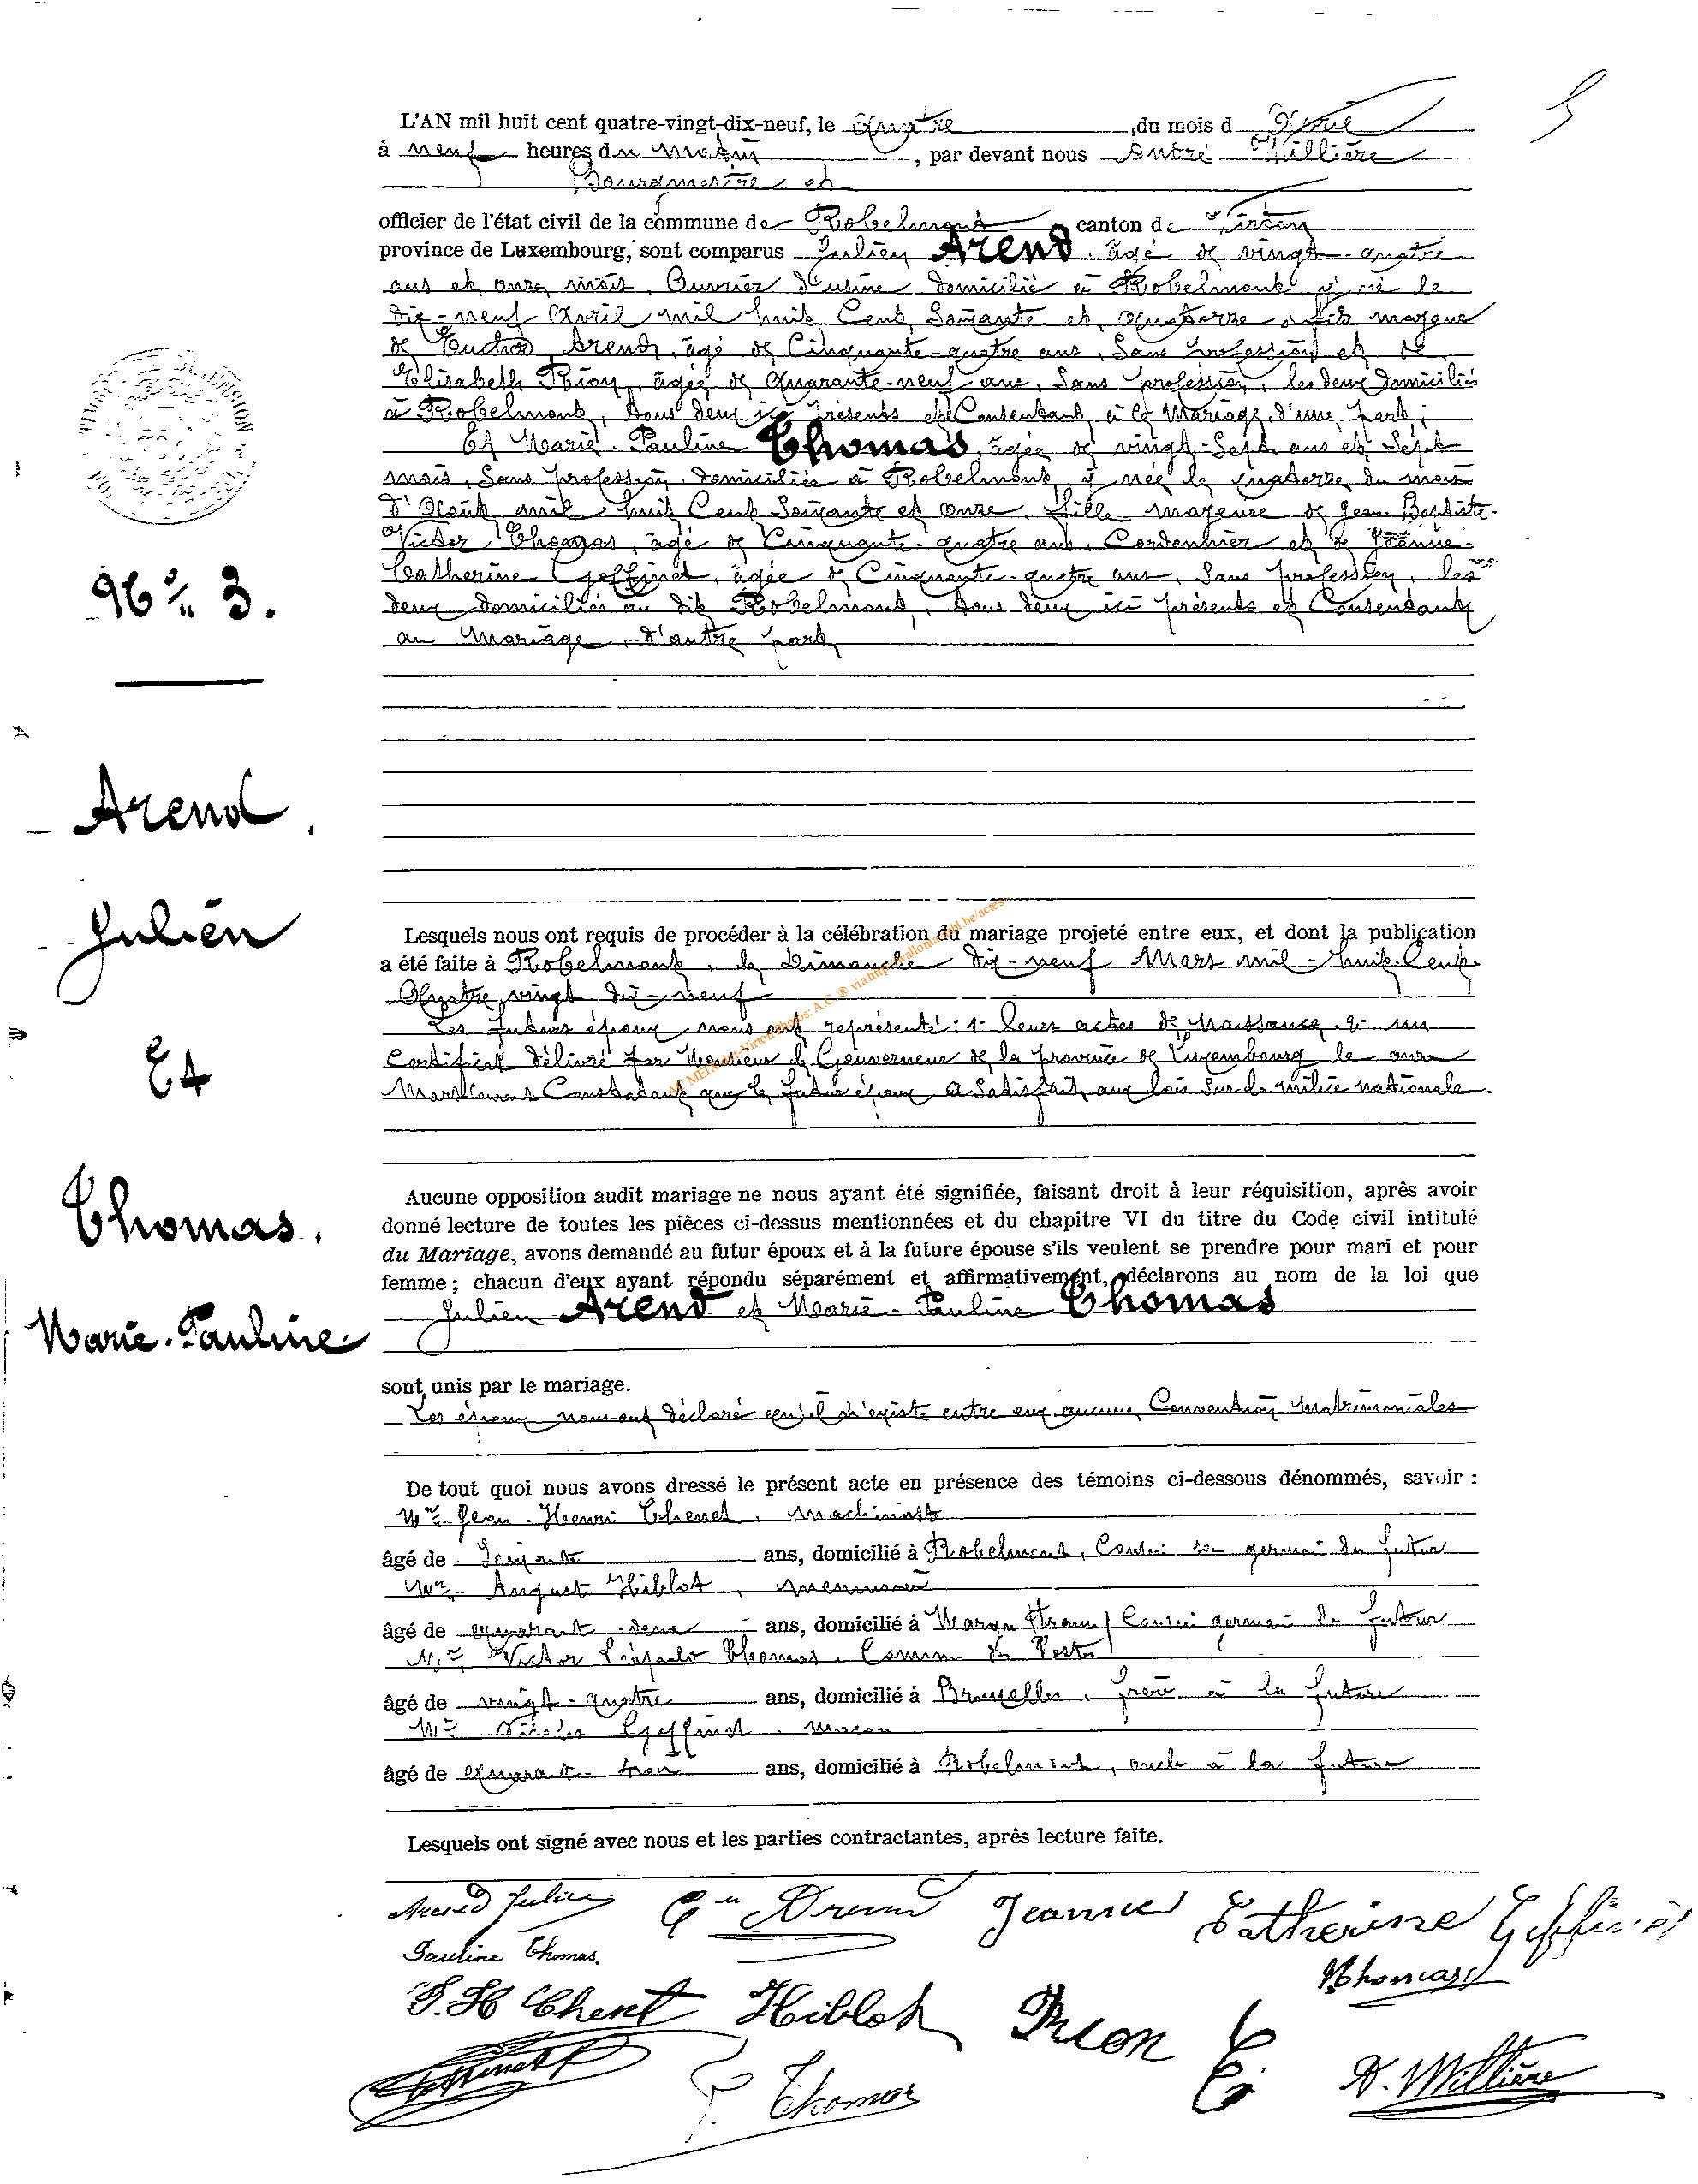 L'AN mil huit cent quatre-vingt-dix-neuf, le quatre , du mois d'Avril
à neuf heures du matin , par devant nous André Willière
Bourgmestre et
officier de l'état civil de la commune de Robelmont canton de Virton
province de Luxembourg, sont comparus Julien Arend, âgé de vingt-quatre
ans et onze mois, Ouvrier d'usine domicilié à Robelmont y né le
dix-neuf Avril mil huit Cent Soixante et Quatorze, fils majeur
de Arend, âgé de Cinquante-quatre ans, Sans profession et de
Elisabeth Rion, âgée de Quarante-neuf ans, Sans profession, les deux domiciliés
à Robelmont, tous deux ici présents et Consentant à ce Mariage, d'une part;
Et Marie-Pauline Thomas, âgée de vingt-Sept ans et Sept
mois, Sans profession, domiciliée à Robelmont, y née le quatorze du mois
d'Août mil huit Cent Soixante et onze, fille majeure de Jean-Baptiste-
Victor Thomas, âgé de Cinquante-quatre ans, Cordonnier et de Jeanne-
Catherine Goffinet, âgée de Cinquante-quatre ans, Sans profession, les
deux domiciliés au dit Robelmont, tous deux ici présents et Consentant
au Mariage, d'autre part
N° 3.
Arend,
Julien
Et
Thomas,
Marie-Pauline
Lesquels nous ont requis de procéder à la célébration du mariage projeté entre eux, et dont la publication
a été faite à Robelmont, le Dimanche dix-neuf Mars mil-huit-Cent-
Quatre vingt dix-neuf
Les futurs époux nous ont représenté: 1° leurs actes de Naissance, 2° un
Certificat délivré par Monsieur le Gouverneur de la province de Luxembourg le onze
Mars Constatant que le futur époux a Satisfait aux lois Sur la milice nationale.
Aucune opposition audit mariage ne nous ayant été signifiée, faisant droit à leur réquisition, après avoir
donné lecture de toutes les pièces ci-dessus mentionnées et du chapitre VI du titre du Code civil intitulé
du Mariage, avons demandé au futur époux et à la future épouse s'ils veulent se prendre pour mari et pour
femme ; chacun d'eux ayant répondu séparément et affirmativement, déclarons au nom de la loi que
Julien Arend et Marie-Pauline Thomas
sont unis par le mariage.
Les époux nous ont déclaré qu'il n'existe entre eux aucune Convention Matrimoniales
De tout quoi nous avons dressé le présent acte en présence des témoins ci-dessous dénommés, savoir :
Mr Jean-Henri Thenet, machiniste
âgé de Soixante ans, domicilié à Robelmont, Cousin germain du futur
Mr August Hiblot, menuisier
âgé de quarant-deux ans, domicilié à Cousin germain du futur
Mr Victor Thomas, Commis des Postes
âgé de vingt-quatre ans, domicilié à Bruxelles, frère à la future
Mr Goffinet, maçon
âgé de quarant-trois ans, domicilié à Robelmont, oncle à la future
Lesquels ont signé avec nous et les parties contractantes, après lecture faite.
Arend Julien Arend Jeanne Catherine Goffinet
Pauline Thomas. Thomas
J. H Thenet Hiblot Rion E
Goffinet Thomas A. Willière